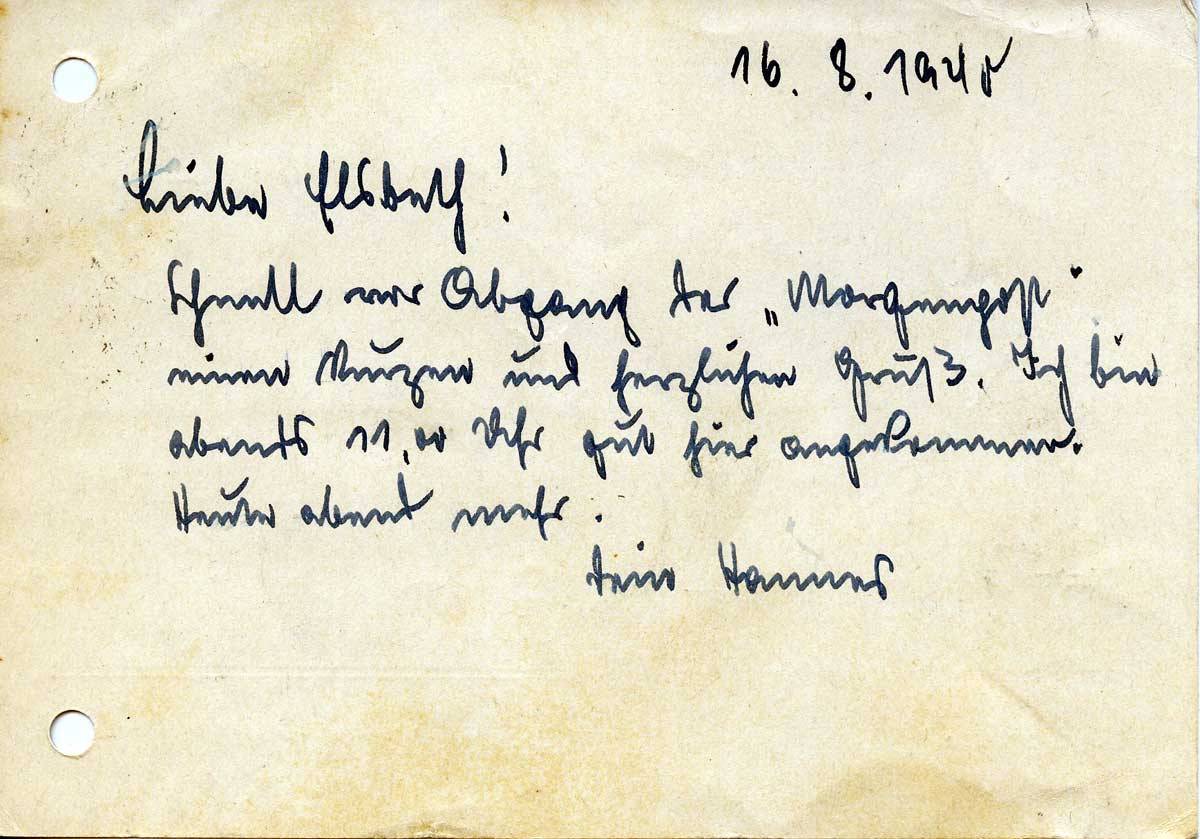 16. 8. 1940
Liebe Elsbeth!
Schnell vor Abgang der „Morgenpost"
einen kurzen und herzlichen Gruß. Ich bin
abends 11,00 Uhr gut hier angekommen.
Heute abend mehr.
Dein Hannes